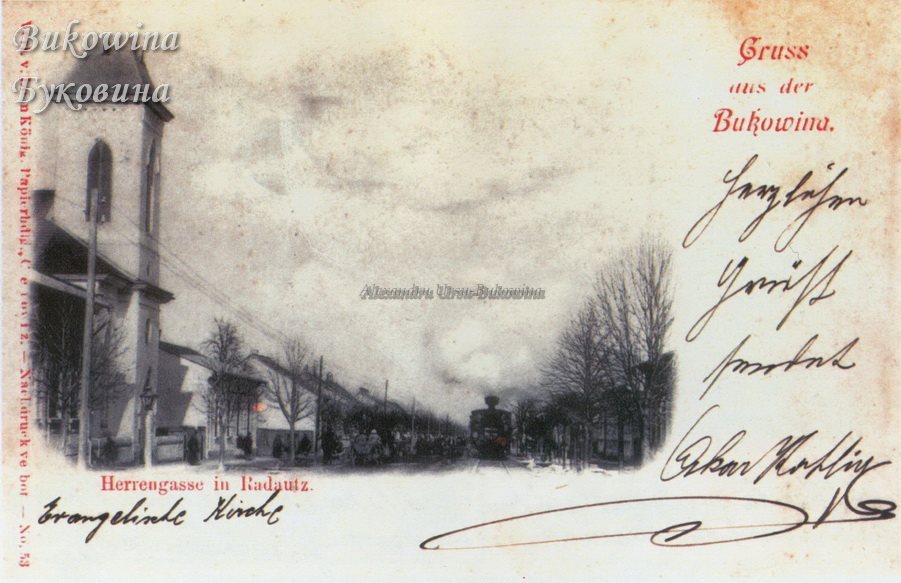 Bukowina
Буковина
Gruss
aus der
Bukowina.
Herzlichen
Grüßt
sendet
Oskar
Alexandru Ursu-Bukowina
Herrengasse in Radautz.
Evangelische Kirche
König, Papierhdlg., Czernowitz. — Nachdruck verbot — No. 53